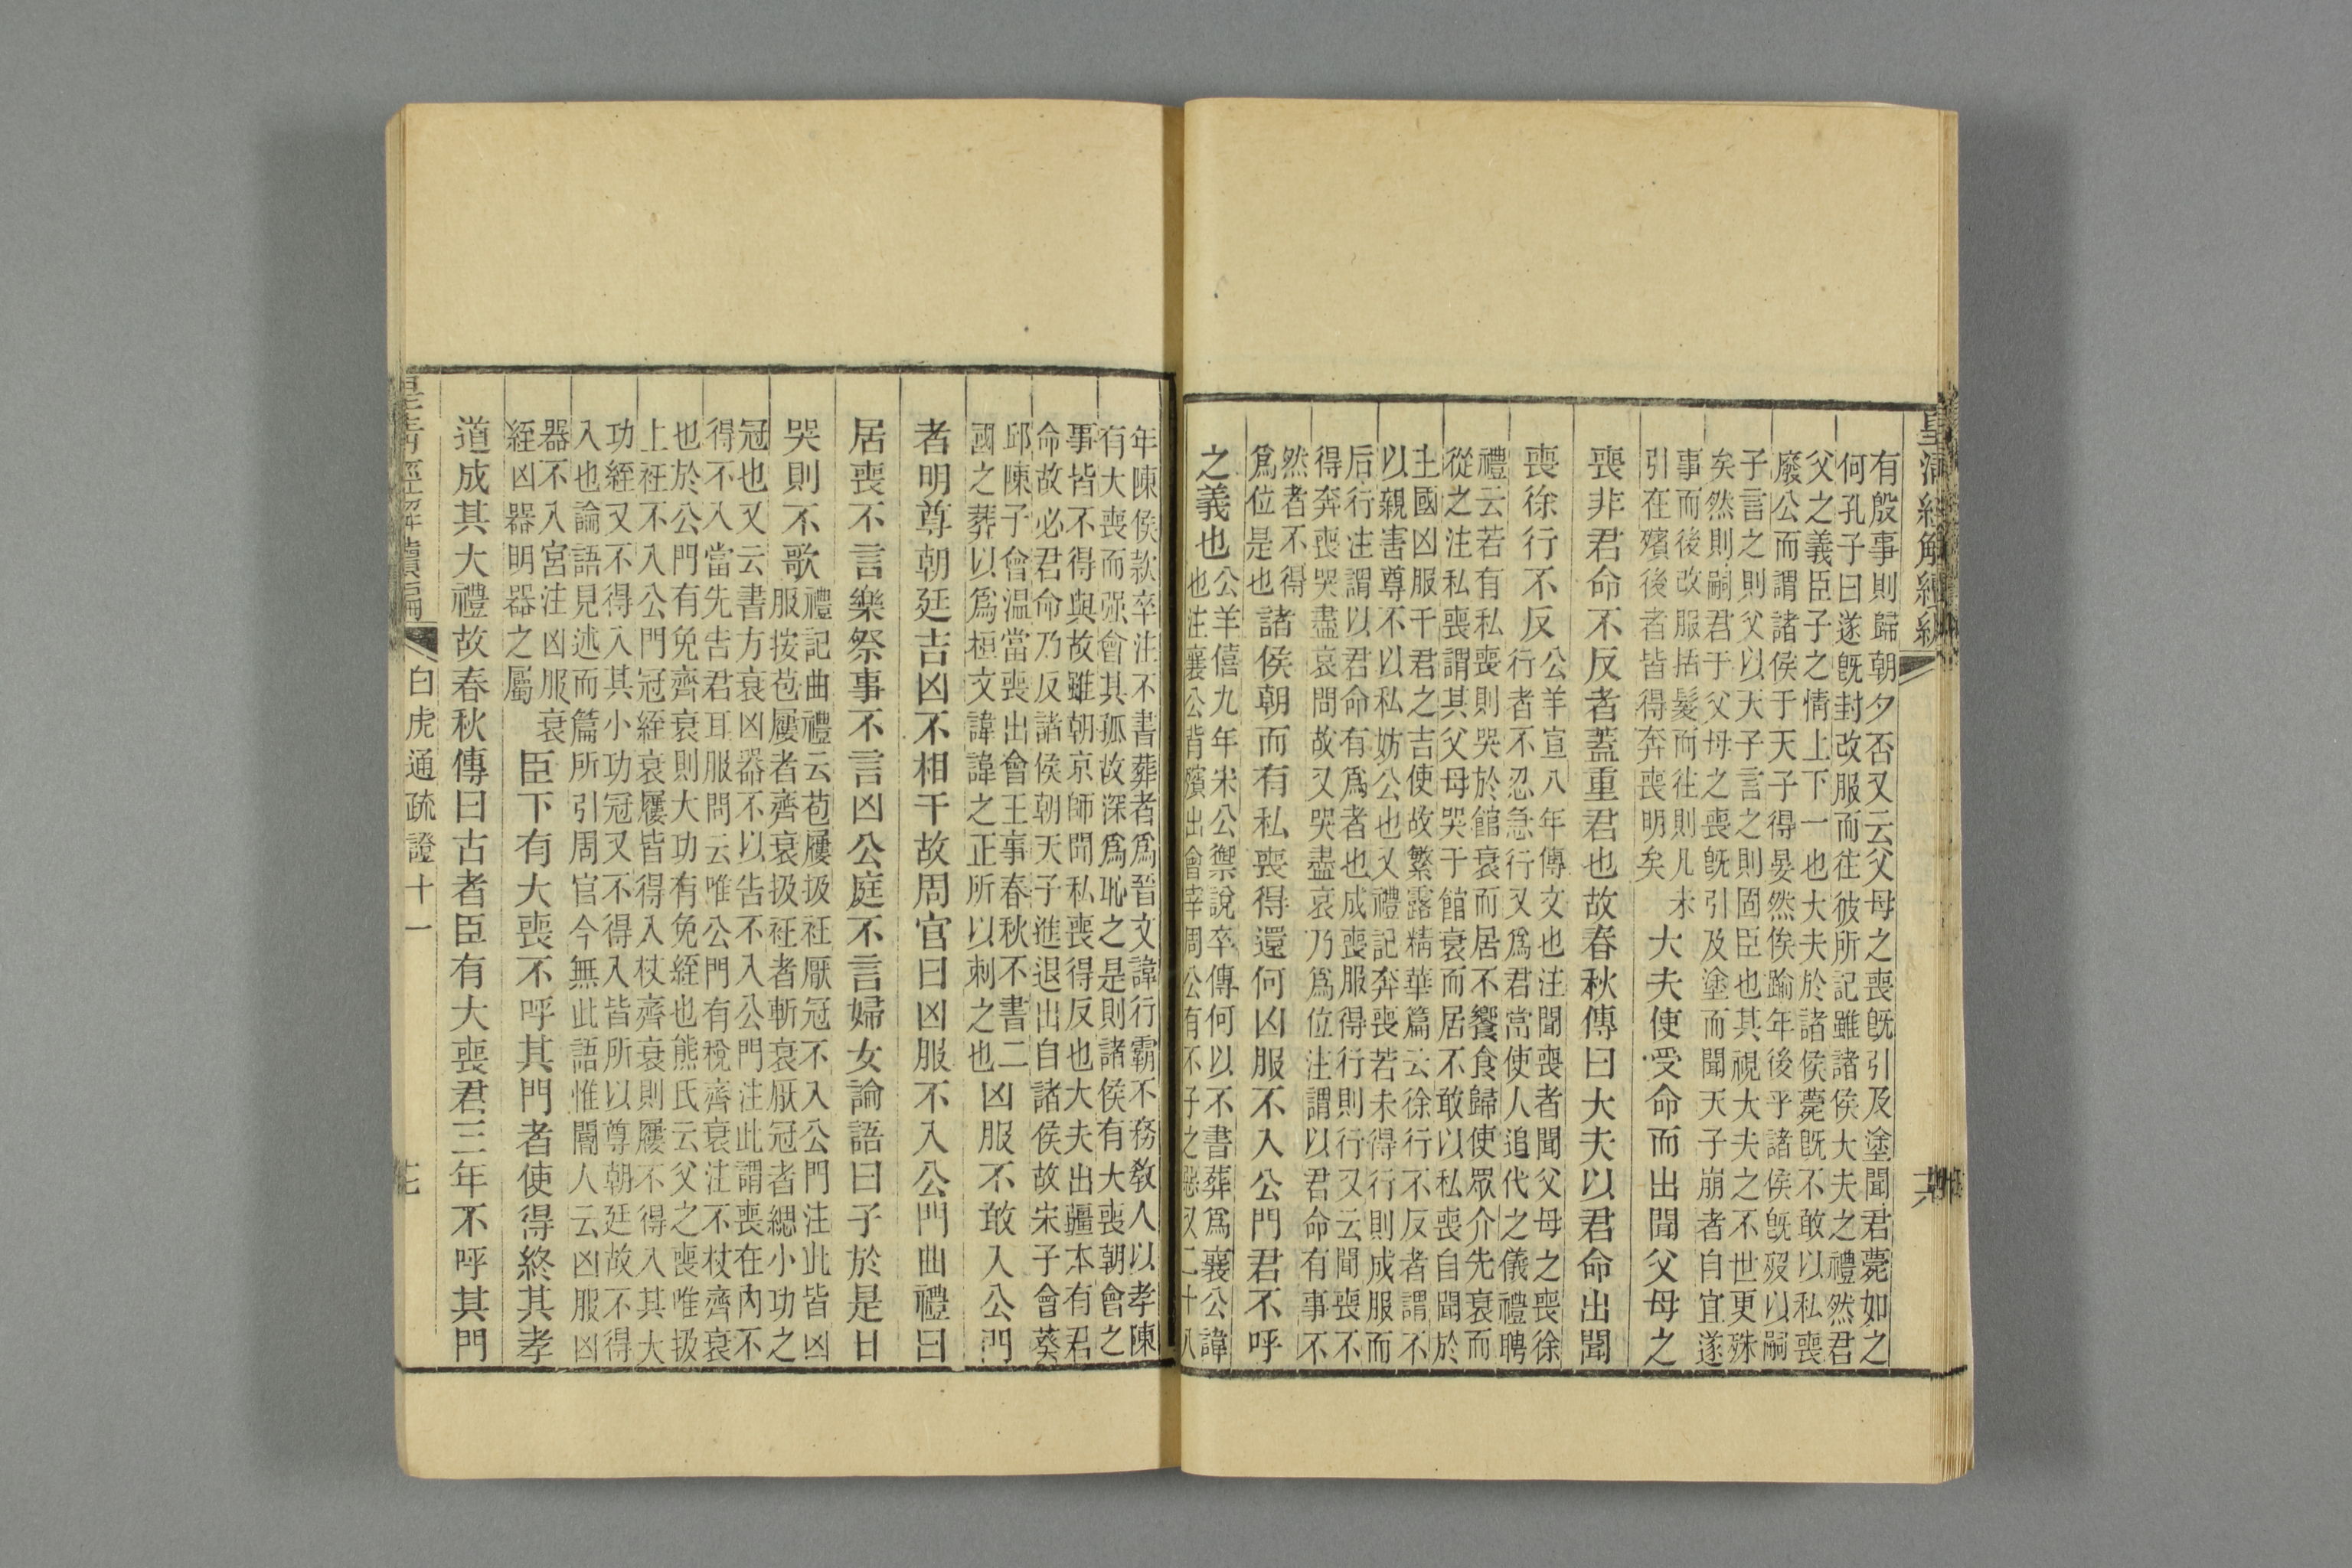 有殷事則歸朝夕否又云父母之喪既引及塗聞君薨如之
何孔子曰遂既封改服而往彼所記雖諸侯大夫之禮然君
父之義臣子之情上下一也大夫於諸侯薨既不敢以私喪
廢公而謂諸侯于天子得晏然俟踰年後乎諸侯既歿以嗣
子言之則父以天子言之則固臣也其視大夫之不世更殊
矣然則嗣君于父母之喪既引及塗而聞天子崩者自宜遂
事而後改服括髮而往則凡未
引在殯後者皆得奔喪明矣
大夫使受命而出聞父母之
喪非君命不反者蓋重君也故春秋傳曰大夫以君命出聞
喪徐行不反
公羊宣八年傳文也注聞喪者聞父母之喪徐
行者不忍急行又爲君當使人追代之儀禮聘
禮云若有私喪則哭於館衰而居不饗食歸使眾介先衰而
從之注私喪謂其父母哭于館衰而居不敢以私喪自聞於
主國凶服干君之吉使故繁露精華篇云徐行不反者謂不
以親害尊不以私妨公也又禮記奔喪若未得行則成服而
后行注謂以君命有爲者也成喪服得行則行又云聞喪不
得奔喪哭盡哀問故又哭盡哀乃爲位注謂以君命有事不
然者不得
爲位是也
諸侯朝而有私喪得還何凶服不入公門君不呼
之義也
公羊僖九年宋公禦說卒傳何以不書葬爲襄公諱
也注襄公背殯出會宰周公有不子之惡又二十八
年陳侯款卒注不書葬者爲晉文諱行霸不務教人以孝陳
有大喪而強會其孤故深爲恥之是則諸侯有大喪朝會之
事皆不得與故雖朝京師聞私喪得反也大夫出疆本有君
命故必君命乃反諸侯朝天子進退出自諸侯故宋子會葵
邱陳子會溫當喪出會王事春秋不書二
國之葬以爲桓文諱諱之正所以刺之也
凶服不敢入公門
者明尊朝廷吉凶不相干故周官曰凶服不入公門曲禮曰
居喪不言樂祭事不言凶公庭不言婦女論語曰子於是日
哭則不歌
禮記曲禮云苞屨扱衽厭冠不入公門注此皆凶
服按苞屨者齊衰扱衽者斬衰厭冠者緦小功之
冠也又云書方衰凶器不以告不入公門注此謂喪在內不
得不入當先告君耳服問云唯公門有稅齊衰注不杖齊衰
也於公門有免齊衰則大功有免絰也熊氏云父之喪唯扱
上衽不入公門冠絰衰屨皆得入杖齊衰則屨不得入其大
功絰又不得入其小功冠又不得入皆所以尊朝廷故不得
入也論語見述而篇所引周官今無此語惟閽人云凶服凶
器不入宮注凶服衰
絰凶器明器之屬
臣下有大喪不呼其門者使得終其孝
道成其大禮故春秋傳曰古者臣有大喪君三年不呼其門
白虎通疏證十一